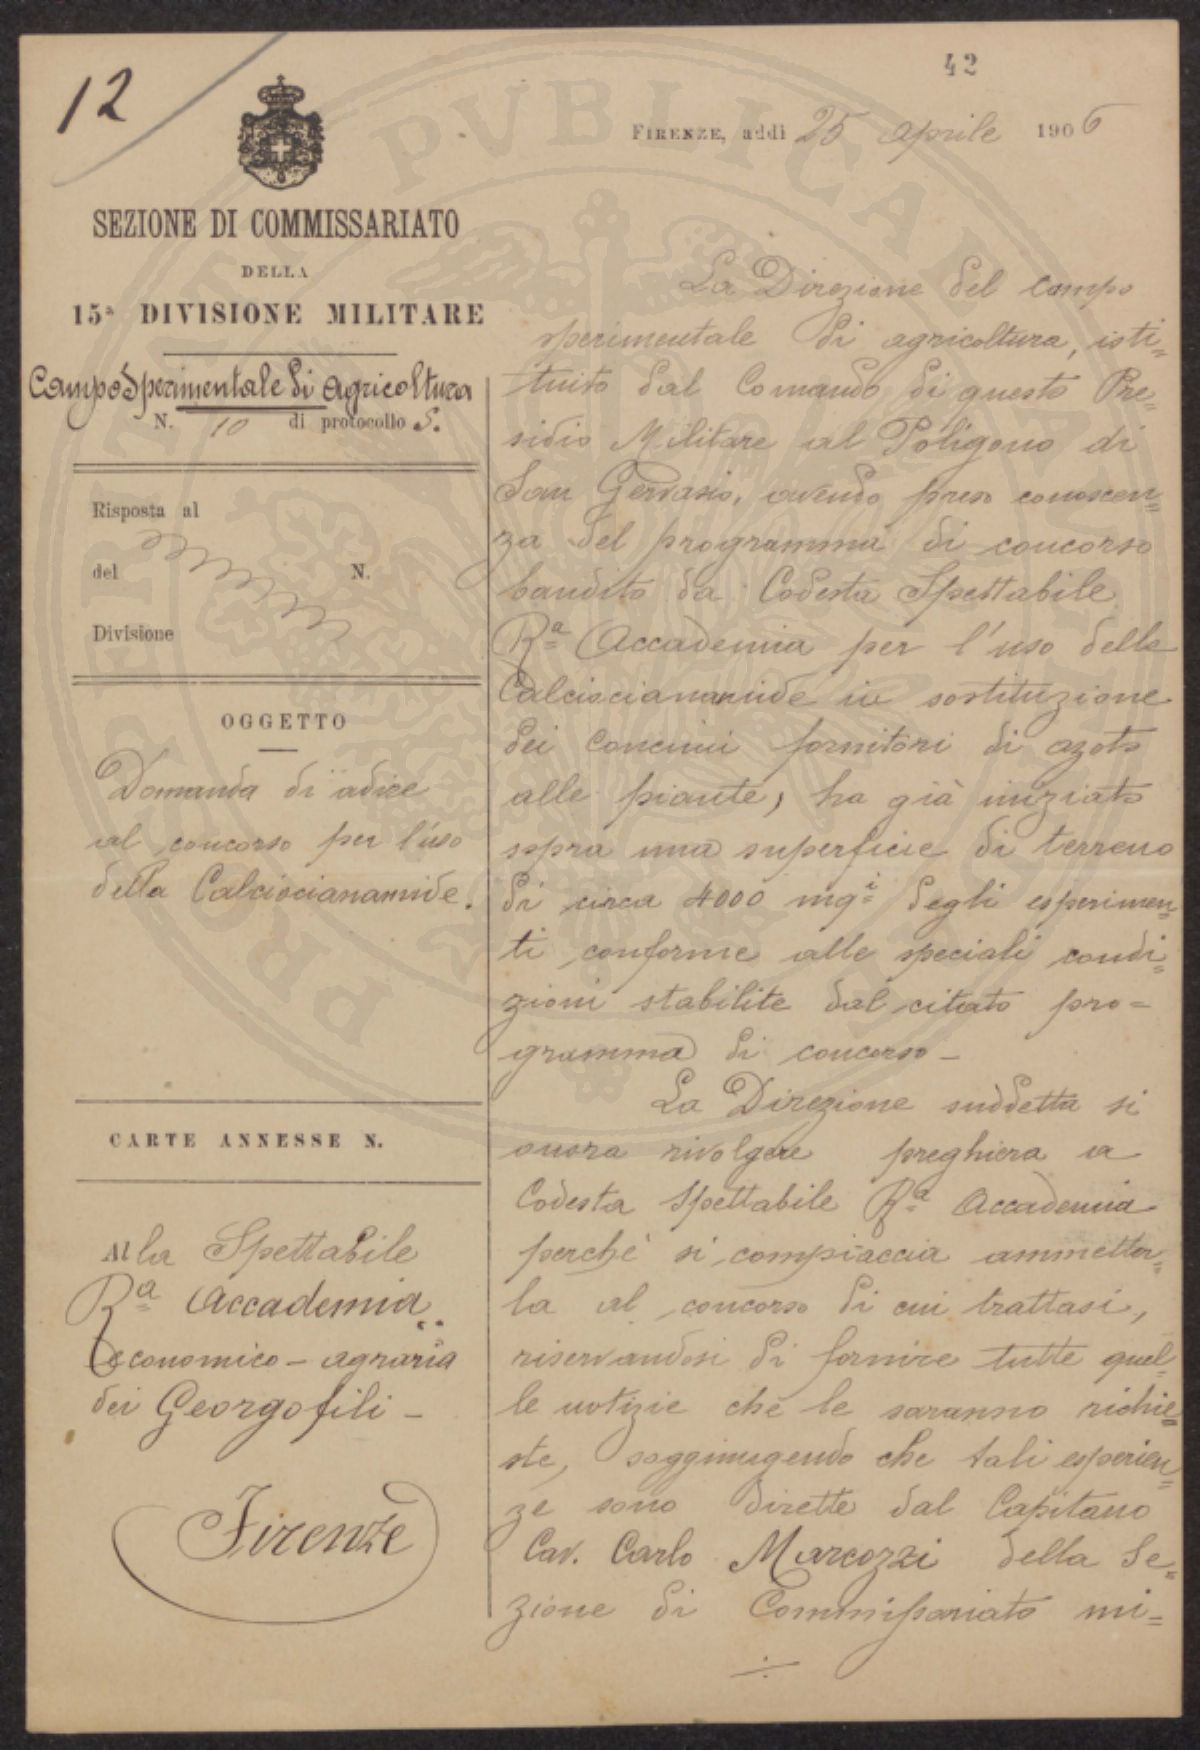 12
42
FIRENZE, addì 25 aprile 1906
SEZIONE DI COMMISSARIATO
DELLA
15ª DIVISIONE MILITARE
Campo Sperimentale di Agricoltura
N. 10 di protocollo S.
Risposta al
del N.
Divisione
OGGETTO
Domanda di adire
al concorso per l'uso
della Calciocianamide.
CARTE ANNESSE N.
Alla Spettabile
Rª Accademia
economico - agraria
dei Georgofili -
Firenze
La Direzione del campo
sperimentale di agricoltura, isti=
tuito dal Comando di questo Pre=
sidio Militare al Poligono di
San Gervasio, avendo preso conoscen=
za del programma di concorso
bandito da Codesta Spettabile
Rª Accademia per l'uso della
Calciocianamide in sostituzione
dei concimi fornitori di azoto
alle piante, ha già iniziato
sopra una superficie di terreno
di circa 4000 mqⁱ degli esperimen=
ti conforme alle speciali condi=
zioni stabilite dal citato pro=
gramma di concorso -
La Direzione suddetta si
onora rivolgere preghiera a
Codesta Spettabile Rª Accademia
perché si compiaccia ammetter=
la al concorso di cui trattasi,
riservandosi di fornire tutte quel=
le notizie che le saranno richie=
ste, soggiungendo che tali esperien=
ze sono dirette dal Capitano
Cav. Carlo Marcozzi della Se=
zione di Commissariato mi=